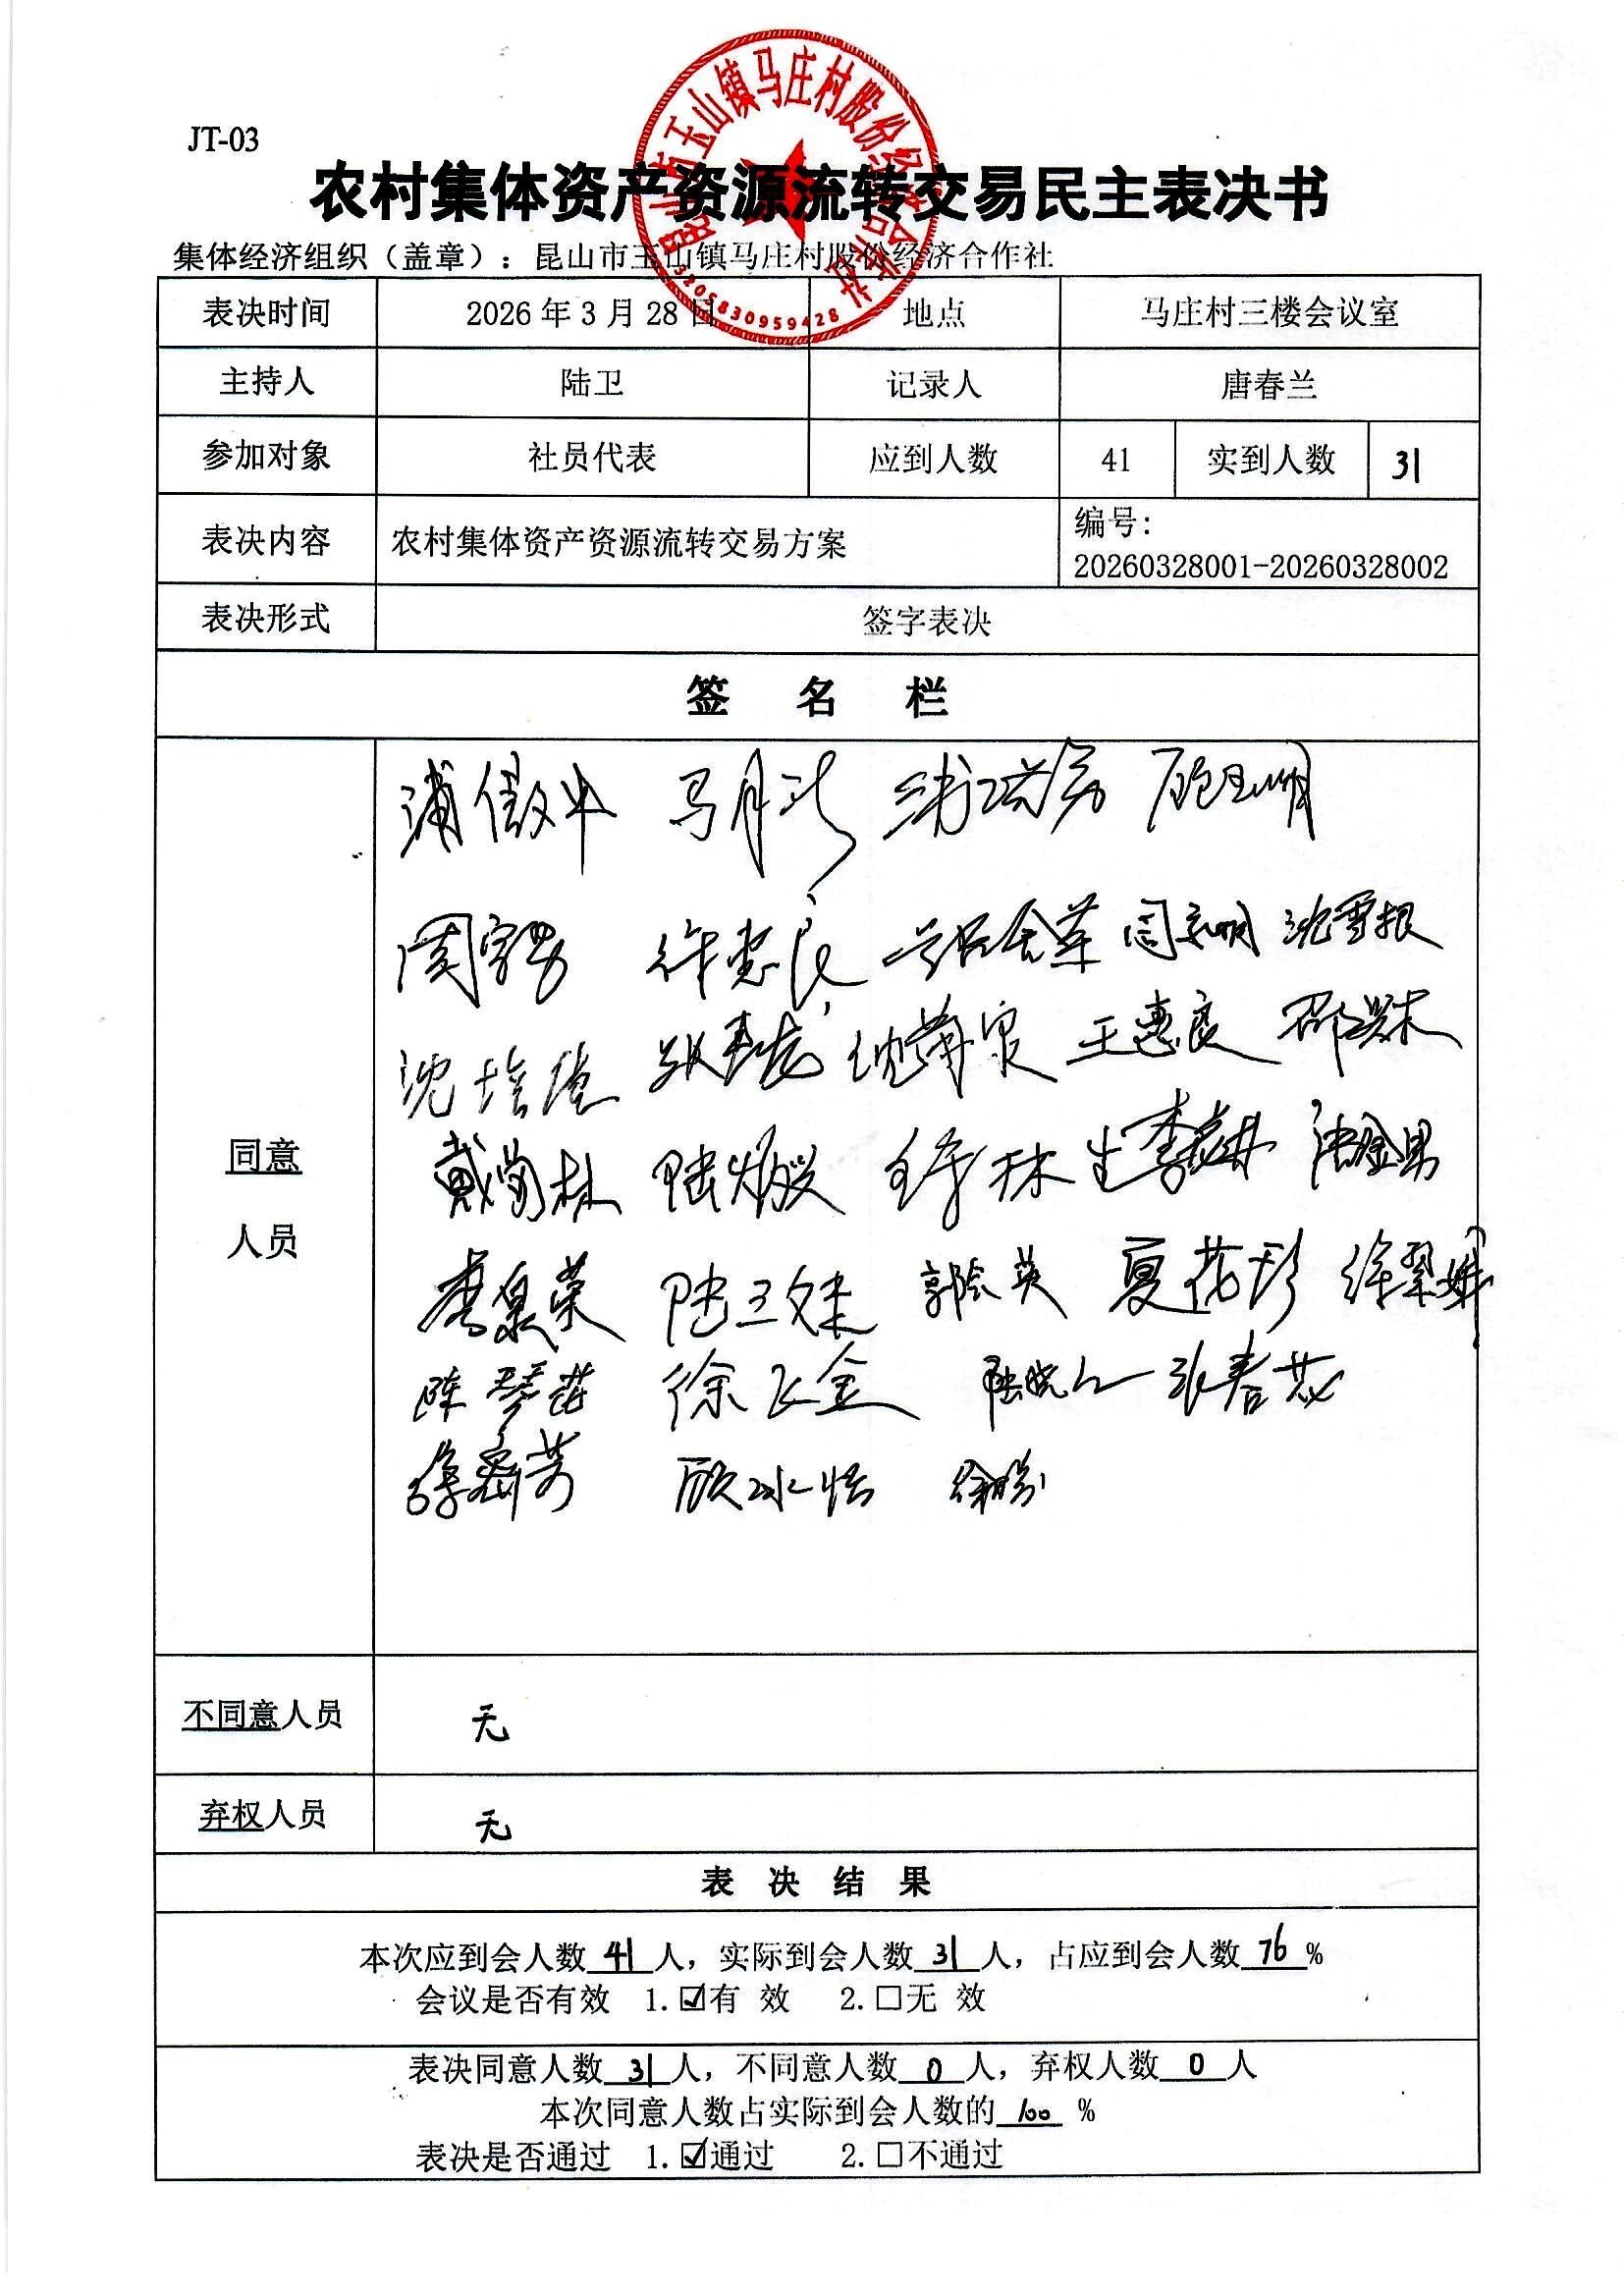 昆山市玉山镇马庄村股份经济合作社
3205830959428
JT-03
农村集体资产资源流转交易民主表决书
集体经济组织（盖章）：昆山市玉山镇马庄村股份经济合作社
表决时间 2026 年 3 月 28 日 地点 马庄村三楼会议室
主持人 陆卫 记录人 唐春兰
参加对象 社员代表 应到人数 41 实到人数 31
表决内容 农村集体资产资源流转交易方案 编号：
20260328001-20260328002
表决形式 签字表决
签 名 栏
同意
人员
马月
徐忠良 沈雪根
沈 王惠良 邵
戴菊林 陆 李 陆金男
泉荣 陆 郭 英 夏花珍 徐翠娥
陈琴芷 徐飞金 陆晓 张春芬
芳 顾冰怡 徐
不同意人员 无
弃权人员 无
表 决 结 果
本次应到会人数 41 人，实际到会人数 31 人，占应到会人数 76 %
会议是否有效 1.☑有 效 2.□无 效
表决同意人数 31 人，不同意人数 0 人，弃权人数 0 人
本次同意人数占实际到会人数的 100 %
表决是否通过 1.☑通过 2.□不通过